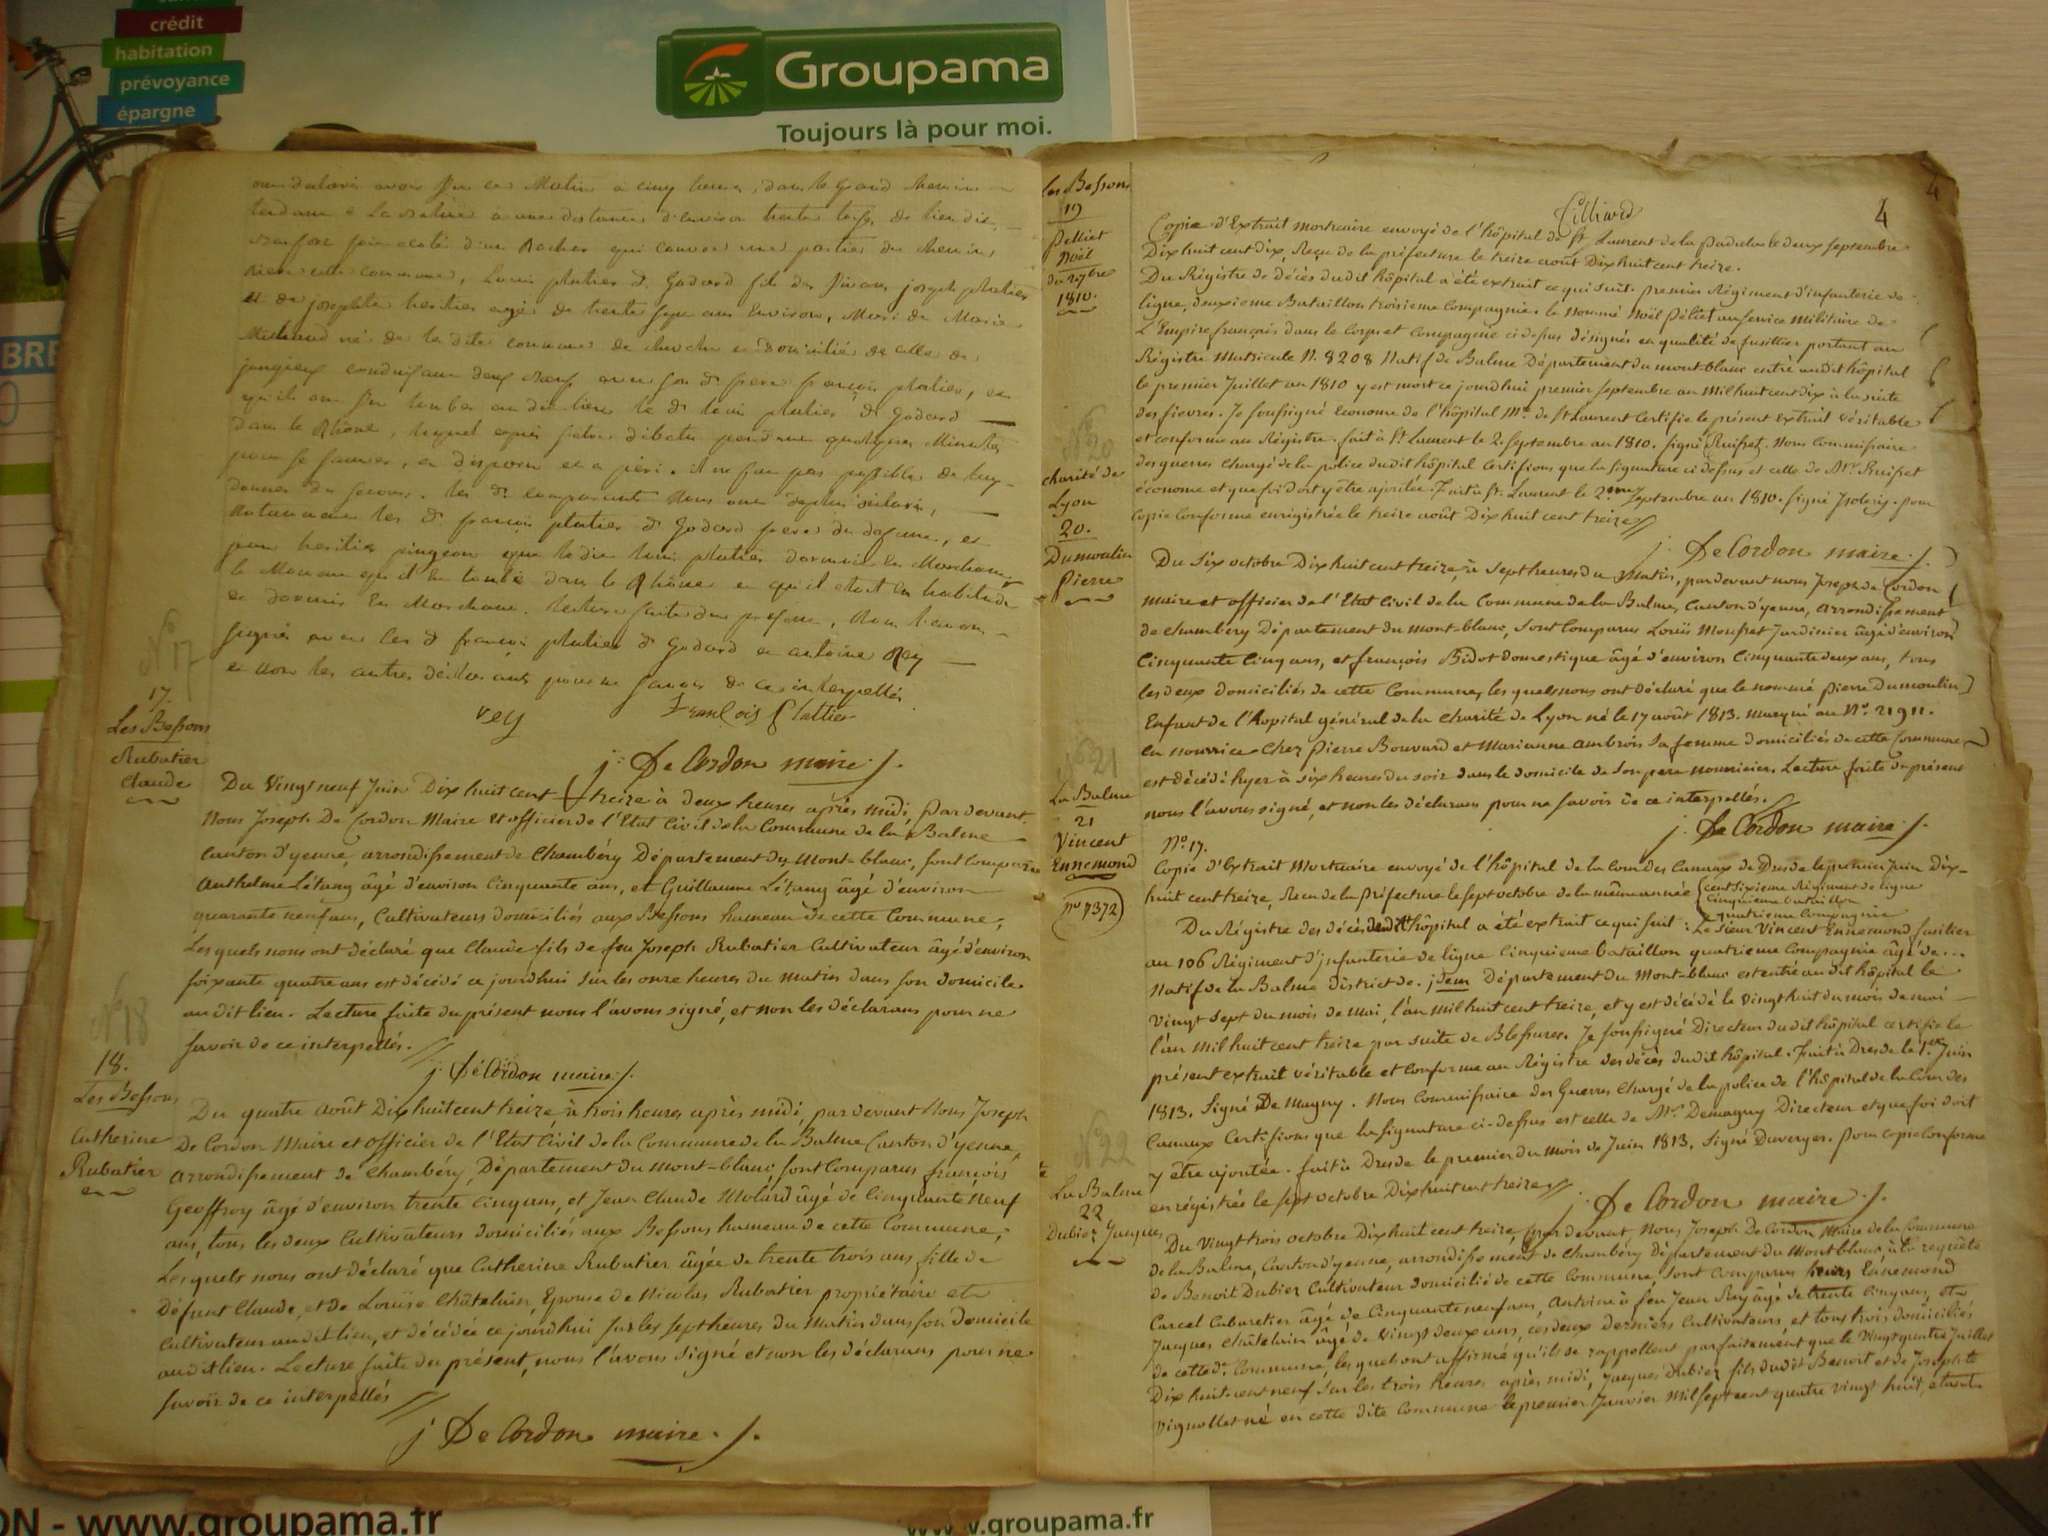 crédit
habitation
prévoyance
épargne
Groupama
Toujours là pour moi.
BRE
ont déclaré avoir vu ce Matin a cinq heures, dans le Grand chemin
tendant a La Balme a une distance d'environ trente
d'un Rocher qui couvre une partie du chemin
commune, Louis platier dt Godard fils de joseph platier
et de josephte âgé de trente sept ans Environ, Mari de Marie
Michaud né de la dite commune de et domicilié de celle de
jongieux conduisant deux Bœufs avec son dt frere françois platier, et
qu'ils ont vu tomber le dt Louis platier dt Godard
dans le Rhône, lequel après s'etre débatu pendant quelques Minutes
pour se sauver, a disparu et a péri. il ne fut pas possible de luy
donner du secours. les dt comparants Nous ont déclaré,
les dt françois platier dt Godard frere du défunt, et
pingeon que ledit Louis platier dormoit En Marchant
le Moment qu'il Est tombé dans le Rhône et qu'il étoit En habitude
de dormir En Marchant. lecture faite du présent, Nous l'avons
signé avec les dt françois platier dt Godard et antoine Rey
et non les autres déclarants pour ne savoir de ce interpellés.
rey françois Plattier
j. De Cordon maire
No 17
17.
Les Bessons
Rubatier
Claude
Du Vingt neuf Juin Dix huit cent treize à deux heures après midi, Par devant
Nous Joseph De Cordon Maire et officier de l'Etat Civil de la Commune de la Balme
Canton d'yenne, arrondissement de Chambéry Département du Mont-blanc, sont comparus
Anthelme Létang âgé d'environ Cinquante ans, et Guillaume Létang âgé d'environ
quarante neuf ans, Cultivateurs domiciliés aux Bessons hameau de cette Commune,
Lesquels nous ont déclaré que Claude fils de feu Joseph Rubatier Cultivateur âgé d'environ
soixante quatre ans est décédé ce jourdhui sur les onze heures du matin dans son domicile
au dit lieu. Lecture faite du présent nous l'avons signé, et non les déclarans pour ne
savoir de ce interpellés.
j. De Cordon maire
No 18
18.
Les Bessons
Catherine
Rubatier
Du quatre Août Dix huit cent treize à trois heures après midi, par devant Nous Joseph
De Cordon Maire et officier de l'Etat Civil de la Commune de la Balme Canton d'yenne,
arrondissement de Chambéry, Département du mont-blanc sont comparus françois
Geoffroy âgé d'environ trente Cinq ans, et Jean Claude Molard âgé de Cinquante Neuf
ans, tous les deux Cultivateurs domiciliés aux Bessons hameau de cette Commune,
Lesquels nous ont déclaré que Catherine Rubatier âgée de trente trois ans fille de
Défunt Claude, et de Louise Châtelain, Epouse de Nicolas Rubatier propriétaire et
Cultivateur au dit lieu, et décédée ce jourdhui sur les sept heures du Matin dans son Domicile
au dit lieu. Lecture faite du présent, nous l'avons signé et non les déclarans pour ne
savoir de ce interpellés
j. De Cordon maire.
4
4
Les Bessons
19
Pelliet
Noël
du 1er 7bre
1810.
Copie d'Extrait mortuaire envoyé de l'hôpital de St. Laurent de la le deux septembre
Dix huit cent dix, Reçu de la préfecture le treize août Dix huit cent treize.
Du Régistre de décès du dit hôpital a été extrait ce qui suit. premier Régiment d'infanterie de
ligne, deuxieme Bataillon troisieme Compagnie. le nommé Noël Péliet au service Militaire de
L'Empire français dans le Corps et Compagnie ci dessus désignés en qualité de fusillier portant au
Régistre Matricule N. 8208 Natif de Balme Département du mont blanc entré au dit hôpital
le premier Juillet an 1810 y est mort ce jourdhui premier Septembre an Mil huit cent dix à la suite
des fievres. Je soussigné Econome de l'hôpital Mre. de St Laurent Certifie le présent extrait véritable
et conforme au Régistre. fait à St. Laurent le 2. Septembre an 1810. signé Nous Commissaire
des guerres Chargé de la police du dit hôpital Certifions que la Signature ci dessus est celle de Mr.
économe et que foi doit y être ajoutée. Fait à St. Laurent le 2.me Septembre an 1810. signé pour
Copie Conforme enregistrée le treize août Dix huit cent treize
j. De Cordon maire.
No 20
charité de
Lyon
20.
Dumoulin
Pierre
Du Six octobre Dix huit cent treize, à Sept heures du Matin, par devant nous Joseph De Cordon
Maire et officier de l'Etat Civil de la Commune de la Balme, Canton d'yenne, arrondissement
de Chambéry Département du mont-blanc, sont comparus Louis Jardinier âgé d'environ
Cinquante Cinq ans, et françois Bidot domestique âgé d'environ Cinquante deux ans, tous
les deux domiciliés de cette Commune, les quels nous ont déclaré que le nommé pierre Dumoulin
Enfant de l'hopital général de la Charité de Lyon né le 17 août 1813. marqué au No. 2191.
En nourrice chez pierre Bouvard et Marianne Ambrois sa femme domiciliés de cette Commune
est décédé hyer à six heures du soir dans le domicile de son pere nourricier. Lecture faite du présent
nous l'avons signé, et non les déclarans pour ne savoir de ce interpellés.
j. De Cordon maire.
No 21
La Balme
21
Vincent
Ennemond
(No 7372)
No. 17.
Copie d'Extrait Mortuaire envoyé de l'hôpital de la Com des Canaux de Dresde le premier Juin Dix-
huit cent treize, Recu de la Préfecture le sept octobre de la même année cent Sixieme Régiment de ligne
Cinquieme Bataillon
quatrieme Compagnie
Du Régistre des décès du dit hôpital a été extrait ce qui suit : Le Sieur Vincent Ennemond fusilier
au 106 Régiment d'infanterie de ligne Cinquieme bataillon quatrieme Compagnie âgé de ...
Natif de la Balme district de. idem Département du Mont-blanc est entré au dit hôpital le
vingt sept du mois de mai, l'an mil huit cent treize, et y est décédé le Vingt huit du mois de mai
l'an mil huit cent treize par suite de Blessures. Je soussigné Directeur du dit hôpital certifie le
présent extrait véritable et Conforme au Régistre des décès du dit hôpital. Fait à Dresde le 1er Juin
1813. Signé De Magny. Nous Commissaire des Guerres Chargé de la police de l'hôpital de la Com des
Canaux Certifions que la signature ci-dessus est celle de Mr. Demagny Directeur et que foi doit
y être ajoutée. fait à Dresde le premier du mois de Juin 1813. Signé Duverger. pour copie Conforme
enrégistrée le sept octobre Dix huit cent treize
j. De Cordon maire.
No 22
La Balme
22
Dubiez Jaques
Du Vingt trois octobre Dix huit cent treize, par devant, Nous Joseph De Cordon Maire de la Commune
de la Balme, Canton d'yenne, arrondissement de Chambéry Département du Mont blanc, à la requête
de Benoit Dubiez Cultivateur domicilié de cette Commune, sont comparus Ennemond
Carcel Cabaretier âgé de Cinquante neuf ans, Antoine à feu Jean Rey âgé de trente Cinq ans, et
Jacques Châtelain âgé de Vingt deux ans, ces deux derniers Cultivateurs et tous trois domiciliés
de cette dte Commune, les quels ont affirmé qu'ils se rappellent parfaitement que le Vingt quatre Juillet
Dix huit cent neuf sur les trois heures après midi, Jacques Dubiez fils du dit Benoit et de Josephte
Vignollet né en cette dite Commune le premier Janvier mil sept cent quatre vingt huit, étant
ON - www.groupama.fr
www.groupama.fr